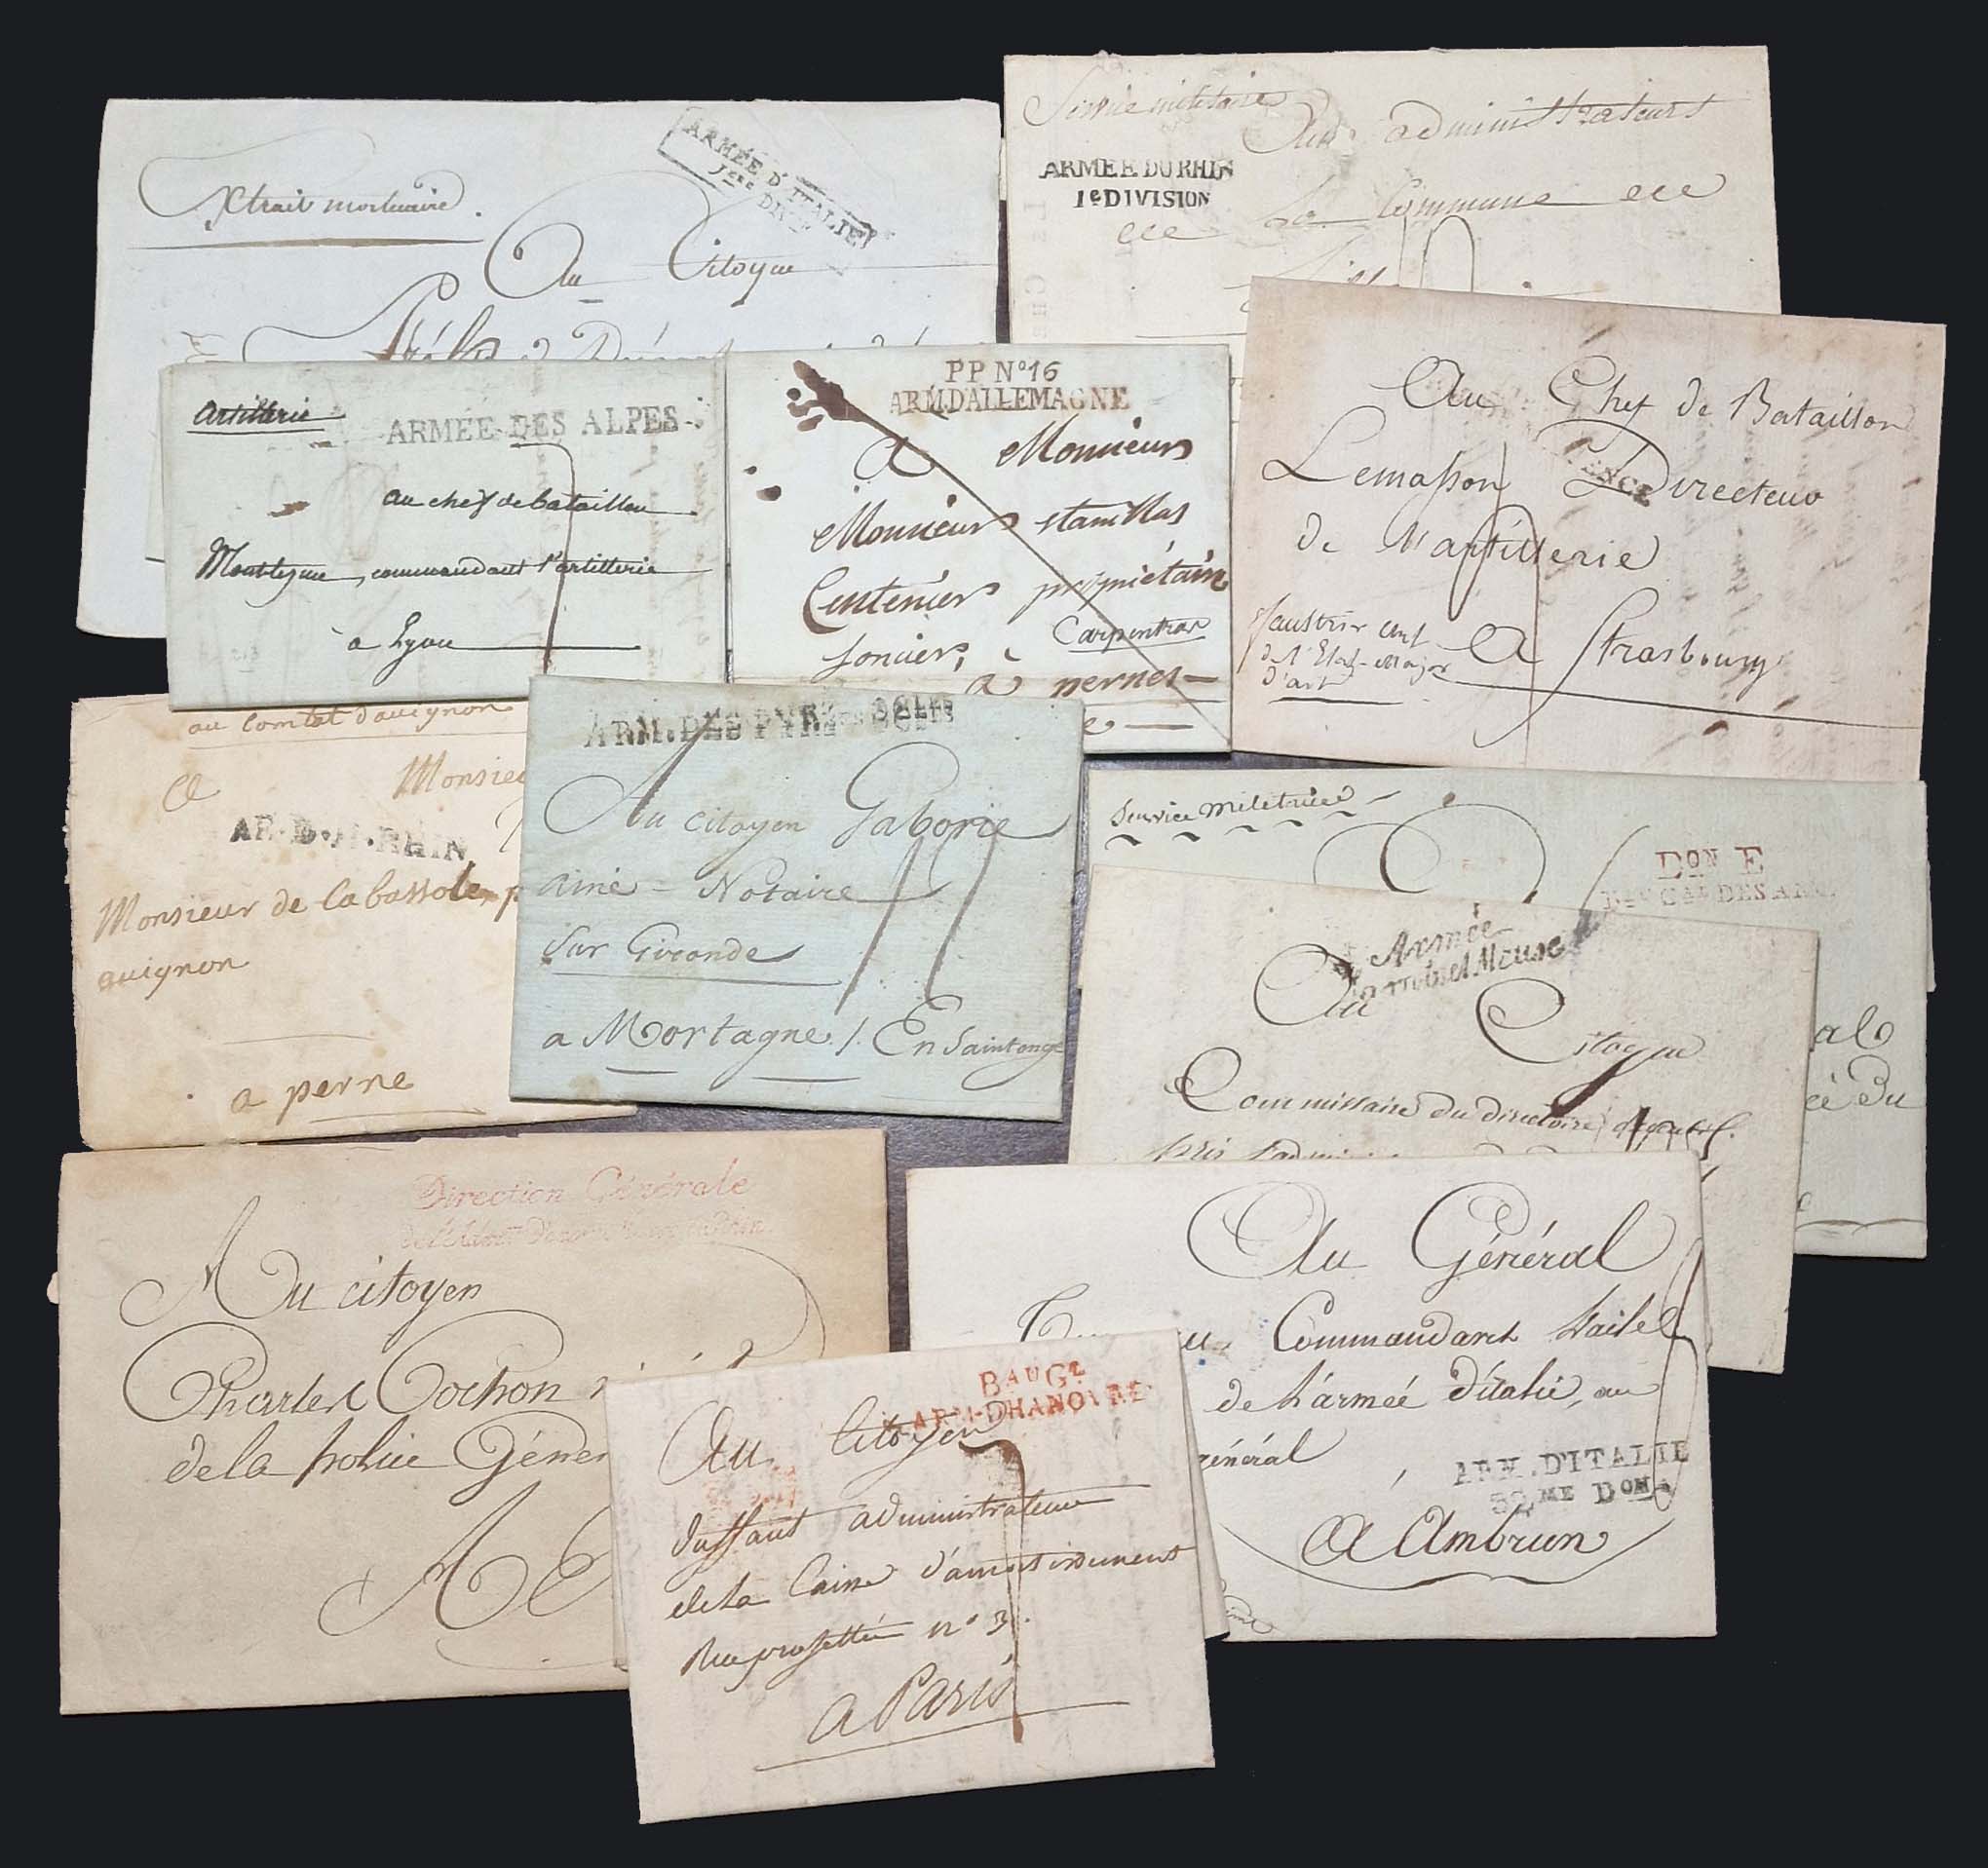 Extrait mortuaire.
ARMÉE D'ITALIE
1ere DIV.
Au Citoyen
Service militaire
Aux administrateurs
ARMEE DU RHIN
1e DIVISION
La Commune
Artillerie
ARMÉE DES ALPES
au chef de bataillon
commandant l'artillerie
à Lyon
PP N°16
ARM. D'ALLEMAGNE
A Monsieur
Monsieur stanislas
Centenier propriétaire
foncier, Carpentras
à pernes
Au Chef de Bataillon
Lemasson Directeur
de l'artillerie
de l'Etat-Major
d'art
A Strasbourg
au Comtat d'avignon
A Monsieu
AR.D.H.RHIN
Monsieur de la bassole
avignon
a perne
ARM. DES PYR
Au Citoyen Gaborie
Ainé - Notaire
Sur Gironde
a Mortagne / En Saintonge
Service militaire
Don E
Armée
Sambre et Meuse
Au Citoyen
Commissaire du directoire
al
ée du
Direction Générale
Au citoyen
Charles Cochon
de la police Géner
A
Au Général
Commandant l'aile
de l'armée d'italie, au
général
ARM. D'ITALIE
32ME DON
A Ambrun
BAU GL
ARM. D'HANOVRE
Au Citoyen
Duffaut administrateur
de la Caisse d'amortissement
Rue n° 3.
a Paris